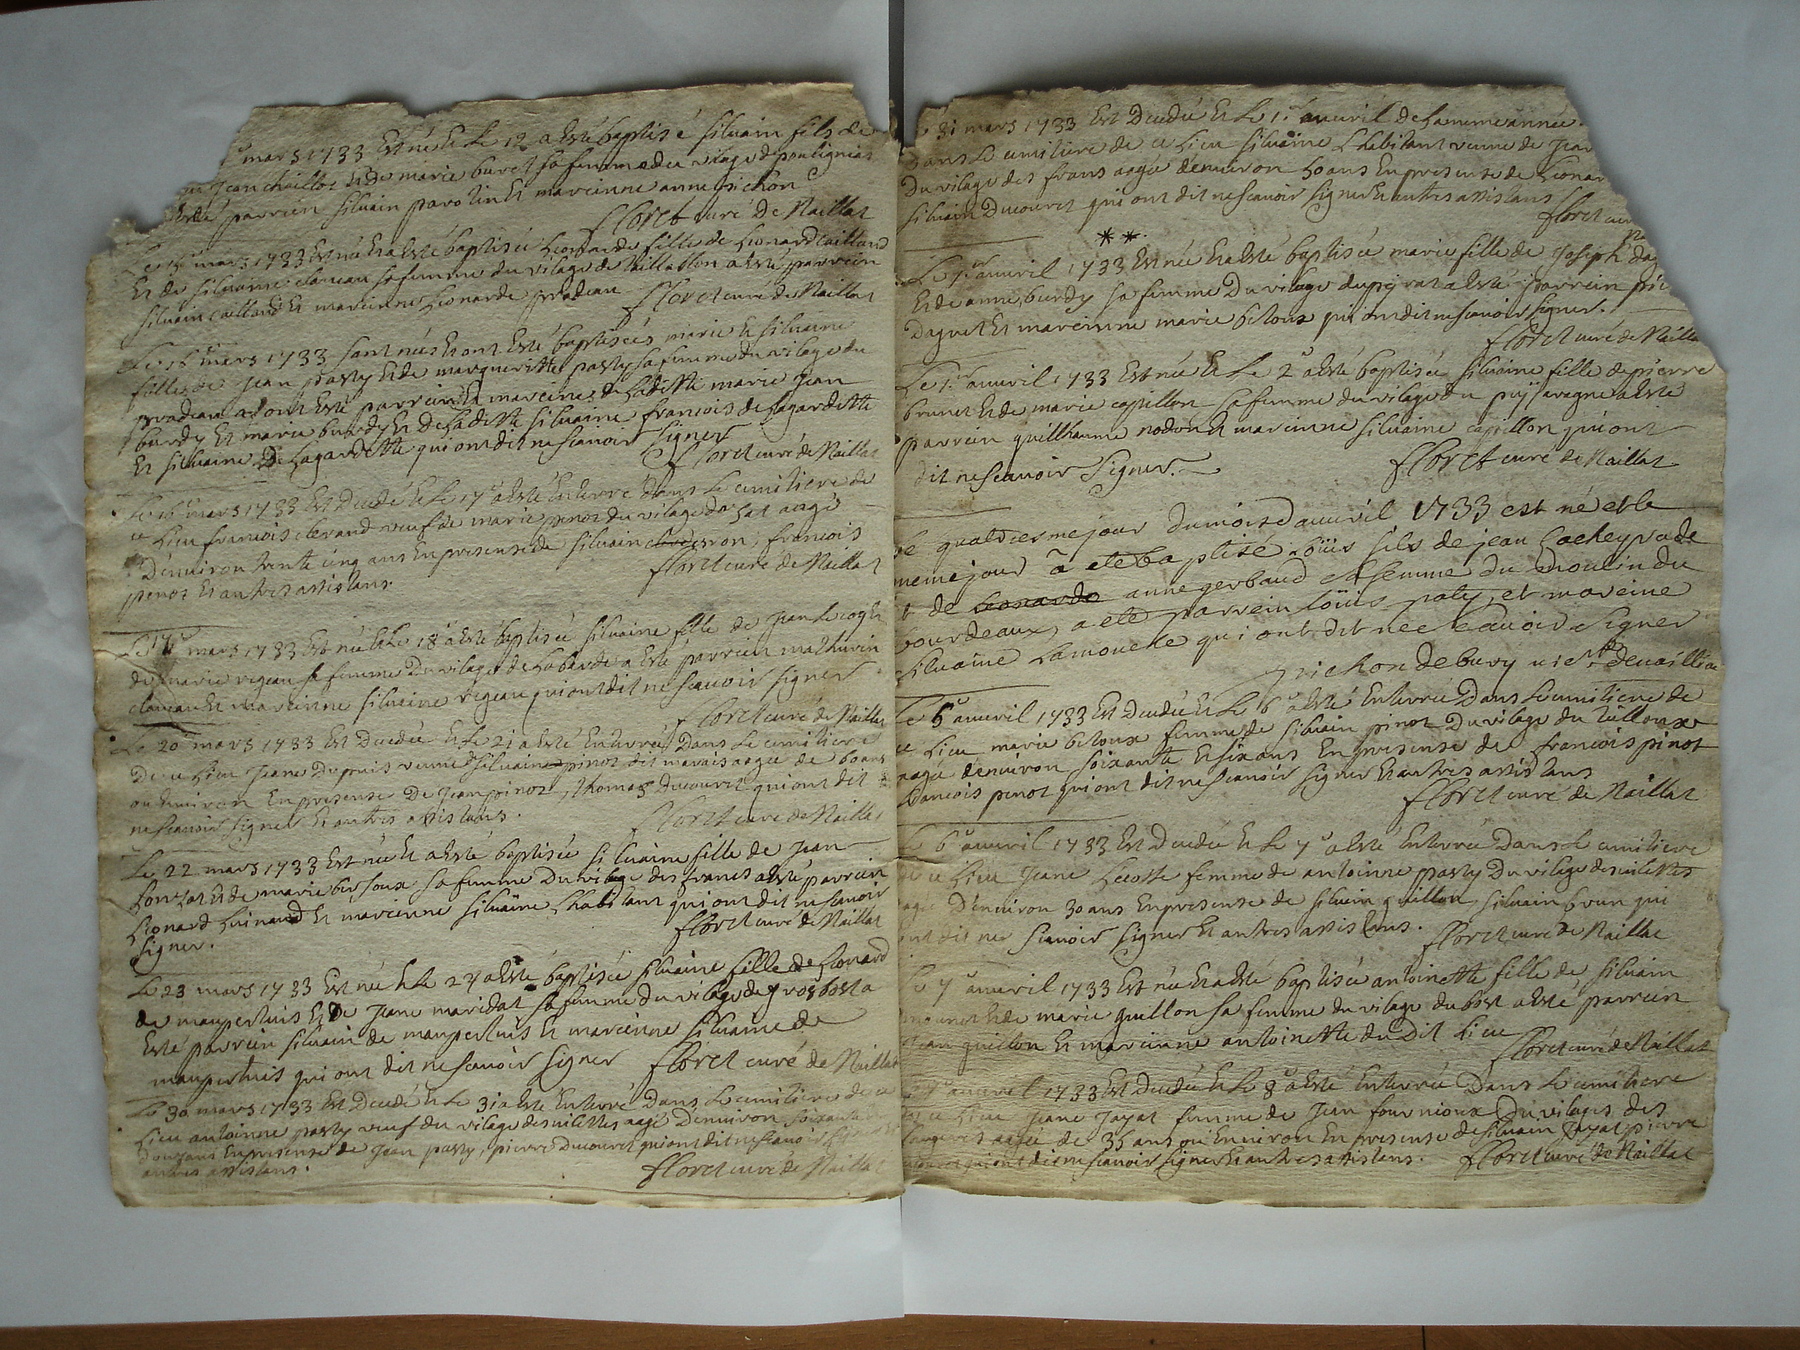 mars 1733 Est né Et le 12 a Esté baptisé silvain fils de
Jean chaillot Et de marie buret sa femme du vilage de poulignias
Esté parrein silvain parotin Et mareinne anne pichon
floret curé de Naillat
Le 15e mars 1733 Est née Et a Esté baptisée Leonarde fille de Lionard Caillaud
Et de silvaine claveau sa femme du vilage de Villablon a Esté parrein
silvain caillaud Et mareinne Lionarde pradeau floret curé de Naillat
Le 16e mars 1733 sont nées Et ont Esté baptisées marie Et silvaine
filles de Jean pasty Et de margueritte pasty sa femme du vilage du
pradeau ont Esté parrein Et mareine de Laditte marie Jean
burdy Et marie burdy Et de Laditte silvaine francois de Lagarditte
Et silvaine de Lagarditte qui ont dit ne scavoir Signer
floret curé de Naillat
Le 16e mars 1733 Est Décédé Et Le 17e a Esté Enterré dans Le cimitiere de
ce Lieu francois clerand veuf de marie pinot du vilage aagé
D'environ trente cinq ans En presense de silvain francois
pinot Et autres assistans. floret curé de Naillat
Le 17e mars 1733 Est née Et Le 18e a Esté baptisée silvaine fille de Jean Lecogh
de marie rigeau sa femme Du vilage de Labarde a Esté parrein mathurin
claveau Et mareinne silvaine rigeau qui ont dit ne scavoir signer
floret curé de Naillat
Le 20e mars 1733 Est Décédée Et Le 21 a Esté Enterrée Dans Le cimitiere
De ce Lieu Jeane Dupuis veuve de silvain pinot dit marais aagée de 60 ans
ou Environ En presense De Jean pinot, thomas ducouret qui ont dit
ne scavoir signer Et autres assistans. floret curé de Naillat
Le 22 mars 1733 Est née Et a Esté baptisée silvaine fille de Jean
Lonzat Et de marie bersoux sa femme Du vilage des francs a Esté parrein
Lionard Luinaud Et mareinne silvaine Lhabitant qui ont dit ne scavoir
signer. floret curé de Naillat
Le 23 mars 1733 Est née Et Le 24 a Esté baptisée silvaine fille de Lionard
de maupertuis Et De Jeane maridat sa femme du vilage de grosbost a
Esté parrein silvain de maupertuis Et mareinne silvaine de
maupertuis qui ont dit ne scavoir signer floret curé de Naillat
Le 30 mars 1733 Est Décédé Et Le 31 a Esté Enterré Dans Le cimitiere de ce
Lieu antoinne pasty veuf du vilage des vilettes aagé D'environ soixante
Douzans En presense de Jean pasty, pierre Ducouret qui ont dit ne scavoir
autres assistans. floret curé de Naillat
31 mars 1733 Est Décédée Et Le 1er auvril de La meme année
Dans Le cimitiere de ce Lieu silvaine Lhabitant veuve de Jean
Du vilage des frans aagée d'environ 50 ans En presense de Lionar
silvain Ducouret qui ont dit ne scavoir signer Et autres assistans
floret curé
Le 1er auvril 1733 Est née Et a Esté baptisée marie fille de Joseph dag
Et de anne burdy sa femme Du vilage dupeyrat a Esté parrein
Daguet Et mareinne marie betoux qui ont dit ne scavoir signer.
floret curé de Nailla
Le 1er auvril 1733 Est née Et Le 2e a Esté baptisée silvaine fille de pierre
brunet Et de marie capillon sa femme du vilage du puy savigne a Esté
parrein guillhaume nodon Et mareinne silvaine capillon qui ont
dit ne scavoir signer. floret curé de Naillat
le quatriesme jour du mois d auvril 1733 est né et le
meme jour a ete baptisé Loüis fils de jean Lacheyprade
et de anne gerbaud sa femme du moulin du
bourdeaux, a ete parrein Loüis paty, et mareine
silvaine Lamouche qui ont dit ne scavoir Signer
pichon debury vic. de naillia
Le 5e auvril 1733 Est Décédée Et Le 6e a Esté Enterrée Dans Le cimitiere de
ce Lieu marie betoux femme de silvain pinot Du vilage du tilloux
aagée d'environ soixante Et six ans En presense de francois pinot
francois pinot qui ont dit ne scavoir signer Et autres assistans
floret curé de Naillat
Le 6e auvril 1733 Est Décédée Et Le 7e a Esté Enterrée Dans Le cimitiere
de ce Lieu Jeane Lecoste femme de antoinne pasty Du vilage des vilettes
aagée D'environ 30 ans En presense de silvain guillon silvain brun qui
ont dit ne scavoir signer Et autres assistans. floret curé de Naillat
Le 7e auvril 1733 Est née Et a Esté baptisée antoinette fille de silvain
Et de marie guillon sa femme du vilage du bost a Esté parrein
Jean guillon Et mareinne antoinette du Dit Lieu
floret curé de Naillat
Le 7e auvril 1733 Est Décédée Et Le 8e a Esté Enterrée Dans Le cimitiere
de ce Lieu Jeane Jayat femme de Jean fournioux Du vilage des
aagée de 35 ans ou Environ En presense de silvain Jayat pierre
qui ont dit ne scavoir signer Et autres assistans. floret curé de Naillat